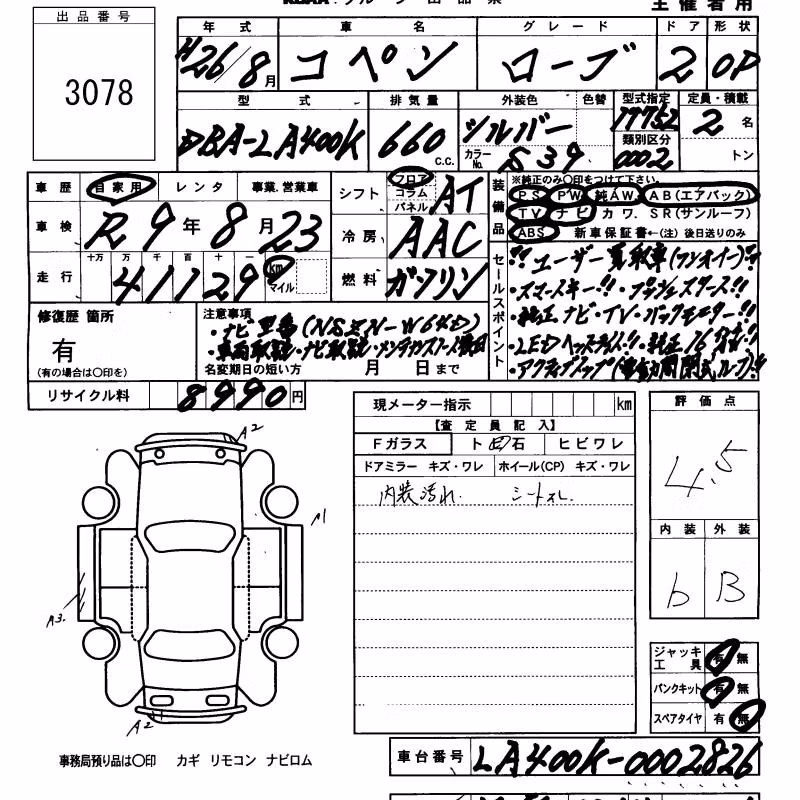 主催者用
出品番号
3078
年式 車名 グレード ドア 形状
H26/8月 コペン ローブ 2 OP
型式 排気量 外装色 色替 型式指定 定員・積載
DBA-LA400K 660 c.c. シルバー 17752 2 名
カラーNo. S39 類別区分 0002 トン
車歴 自家用 レンタ 事業.営業車
シフト フロア コラム パネル AT
車検 R9年8月23
冷房 AAC
走行 十万 万 千 百 十 一
41129 km マイル
燃料 ガソリン
装備品 ※純正のみ〇印をつけて下さい。
PS PW 純AW AB(エアバック)
TV ナビ カワ. SR(サンルーフ)
ABS 新車保証書←(注) 後日送りのみ
セールスポイント
!!ユーザー買取車(ワンオーナー)!!
・スマートキー!!・プッシュスタート!!
・純正ナビ・TV・バックモニター!!
・LEDヘッドライト!!・純正16アルミ!!
・アクティブトップ(電動開閉式ルーフ)!!
修復歴 箇所
有
(有の場合は〇印を)
注意事項
・ナビ型番(NSZN-W64D)
・車両取説・ナビ取説・メンテナンスノート後日
名変期日の短い方 月 日まで
リサイクル料 8990円
現メーター指示 km
【査定員記入】
Fガラス ト 石 ヒビワレ
ドアミラー キズ・ワレ ホイール(CP) キズ・ワレ
内装汚れ. シートスレ.
評価点
4.5
内装 外装
b B
A2
A1
A3.
A2
ジャッキ工具 有 無
パンクキット 有 無
スペアタイヤ 有 無
事務局預り品は〇印 カギ リモコン ナビロム
車台番号 LA400K-0002826